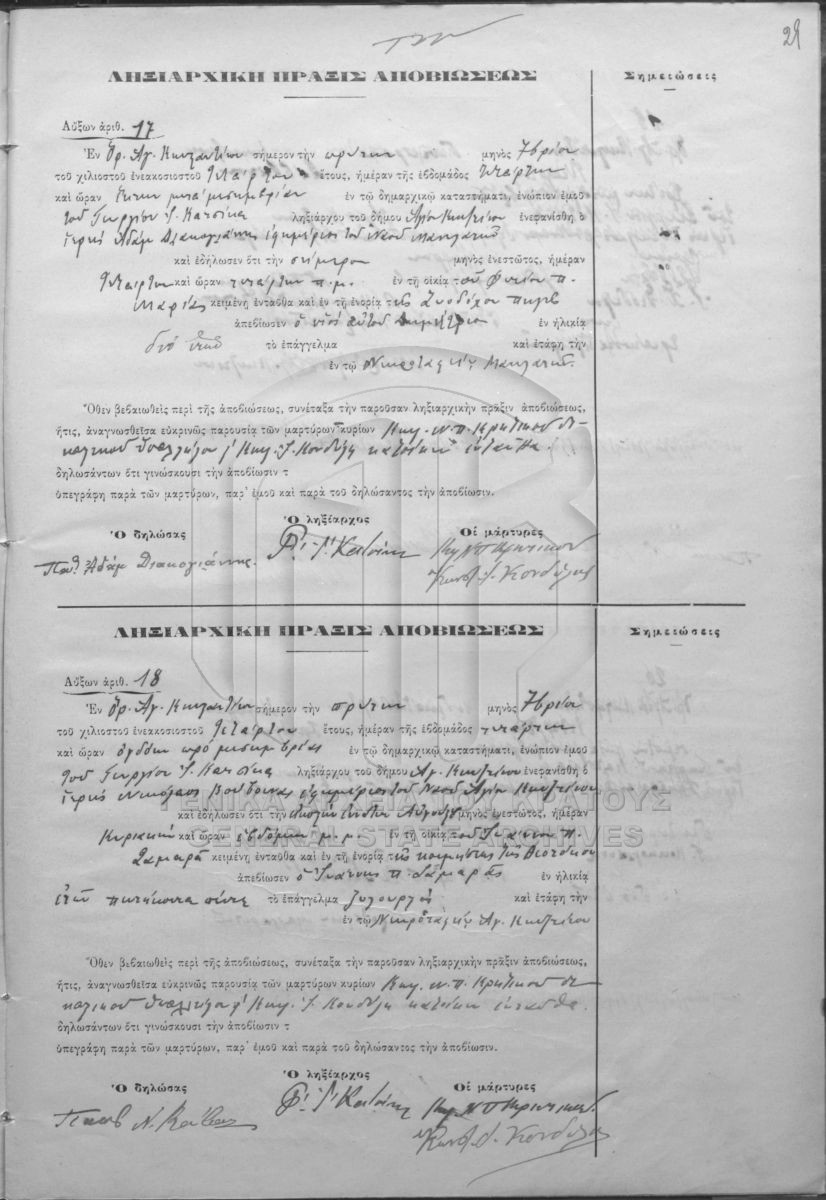 29
ΛΗΞΙΑΡΧΙΚΗ ΠΡΑΞΙΣ ΑΠΟΒΙΩΣΕΩΣ
Σημειώσεις
Αὔξων ἀριθ. 17
Ἐν Ὁρ. Αγ. σήμερον τὴν πρώτην μηνὸς 7βρίου
τοῦ χιλιοστοῦ ἐνεακοσιοστοῦ Τετάρτου ἔτους, ἡμέραν τῆς ἑβδομάδος τετάρτην
καὶ ὥραν μετὰ μεσημβρίαν ἐν τῷ δημαρχικῷ καταστήματι, ἐνώπιον ἐμοῦ
τοῦ Γεωργίου Ι. Κατσίκα ληξιάρχου τοῦ δήμου ἐνεφανίσθη ὁ
ἱερεὺς Ἀδὰμ Διακογιάννης ἐφημέριος τοῦ Ναοῦ
καὶ ἐδήλωσεν ὅτι τὴν σήμερον μηνὸς ἐνεστῶτος, ἡμέραν
Τετάρτην καὶ ὥραν τετάρτην π.μ. ἐν τῇ οἰκίᾳ τοῦ Π.
κειμένῃ ἐνταῦθα καὶ ἐν τῇ ἐνορίᾳ τῆς Ζωοδόχου Πηγῆς
ἀπεβίωσεν ὁ υἱὸς αὐτοῦ Δημήτριος ἐν ἡλικίᾳ
δύο ἐτῶν τὸ ἐπάγγελμα καὶ ἐτάφη τὴν
ἐν τῷ
Ὅθεν βεβαιωθεὶς περὶ τῆς ἀποβιώσεως, συνέταξα τὴν παροῦσαν ληξιαρχικὴν πρᾶξιν ἀποβιώσεως,
ἥτις, ἀναγνωσθεῖσα εὐκρινῶς παρουσίᾳ τῶν μαρτύρων κυρίων Ν. Π. Κρητικοῦ
ὑπαλλήλου Ι. Κονδύλη κατοίκων ἐνταῦθα.
δηλωσάντων ὅτι γινώσκουσι τὴν ἀποβίωσιν τ
ὑπεγράφη παρὰ τῶν μαρτύρων, παρ' ἐμοῦ καὶ παρὰ τοῦ δηλώσαντος τὴν ἀποβίωσιν.
Ὁ δηλώσας Ὁ ληξίαρχος Οἱ μάρτυρες
Παπ Ἀδὰμ Διακογιάννης. Γ. Ι. Κατσίκας Ν Π Κρητικού
Κωνστ. Ι. Κονδύλης
ΛΗΞΙΑΡΧΙΚΗ ΠΡΑΞΙΣ ΑΠΟΒΙΩΣΕΩΣ
Σημειώσεις
Αὔξων ἀριθ. 18
Ἐν Ὁρ. Αγ. σήμερον τὴν πρώτην μηνὸς 7βρίου
τοῦ χιλιοστοῦ ἐνεακοσιοστοῦ Τετάρτου ἔτους, ἡμέραν τῆς ἑβδομάδος τετάρτην
καὶ ὥραν ὀγδόην πρὸ μεσημβρίας ἐν τῷ δημαρχικῷ καταστήματι, ἐνώπιον ἐμοῦ
τοῦ Γεωργίου Ι. Κατσίκα ληξιάρχου τοῦ δήμου Αγ. ἐνεφανίσθη ὁ
ἱερεὺς Νικόλαος ἐφημέριος τοῦ Ναοῦ Αγίου
καὶ ἐδήλωσεν ὅτι τὴν Αὐγούστου μηνὸς ἐνεστῶτος, ἡμέραν
Κυριακὴν καὶ ὥραν ἑβδόμην μ.μ. ἐν τῇ οἰκίᾳ τοῦ Ἰωάννου Π.
Σαμαρᾶ κειμένῃ ἐνταῦθα καὶ ἐν τῇ ἐνορίᾳ τῆς κοιμήσεως τῆς Θεοτόκου
ἀπεβίωσεν ὁ Ἰωάννης Π. Σαμαρᾶς ἐν ἡλικίᾳ
ἐτῶν πεντήκοντα πέντε τὸ ἐπάγγελμα ξυλουργὸς καὶ ἐτάφη τὴν
ἐν τῷ Νεκροταφείῳ Αγ.
ΓΕΝΙΚΑ ΑΡΧΕΙΑ ΤΟΥ ΚΡΑΤΟΥΣ
GENERAL STATE ARCHIVES
Ὅθεν βεβαιωθεὶς περὶ τῆς ἀποβιώσεως, συνέταξα τὴν παροῦσαν ληξιαρχικὴν πρᾶξιν ἀποβιώσεως,
ἥτις, ἀναγνωσθεῖσα εὐκρινῶς παρουσίᾳ τῶν μαρτύρων κυρίων Ν. Π. Κρητικοῦ
ὑπαλλήλου Ι. Κονδύλη κατοίκων ἐνταῦθα.
δηλωσάντων ὅτι γινώσκουσι τὴν ἀποβίωσιν τ
ὑπεγράφη παρὰ τῶν μαρτύρων, παρ' ἐμοῦ καὶ παρὰ τοῦ δηλώσαντος τὴν ἀποβίωσιν.
Ὁ δηλώσας Ὁ ληξίαρχος Οἱ μάρτυρες
Ν. Γ. Ι. Κατσίκας Ν Π Κρητικού
Κωνστ. Ι. Κονδύλης